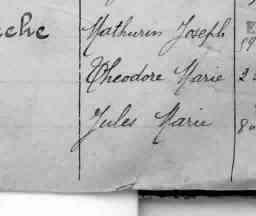 eche Mathurin Joseph
Théodore Marie
Jules Marie